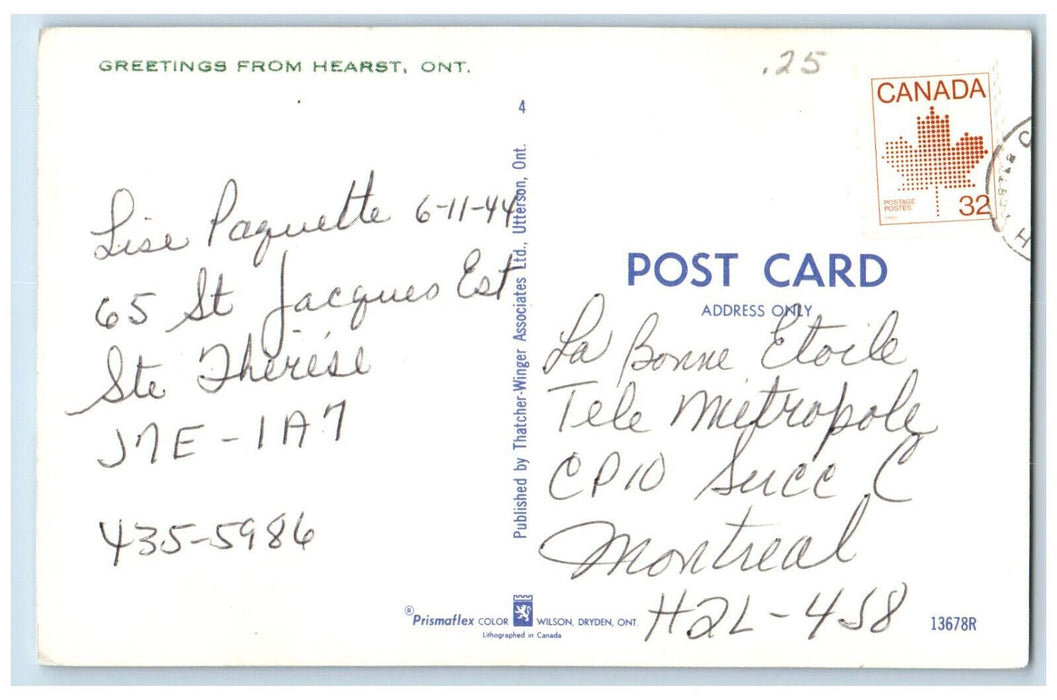 GREETINGS FROM HEARST, ONT.
.25
CANADA
POSTAGE
POSTES
32
4
Lise Paquette 6-11-44
65 St Jacques Est
Ste Thérèse
J7E-1A7
435-5986
Published by Thatcher-Winger Associates Ltd., Utterson, Ont.
POST CARD
ADDRESS ONLY
La Bonne Etoile
Tele Métropole
CP10 Succ C
Montreal
H2L-4S8
®Prismaflex COLOR WILSON, DRYDEN, ONT.
Lithographed in Canada
13678R